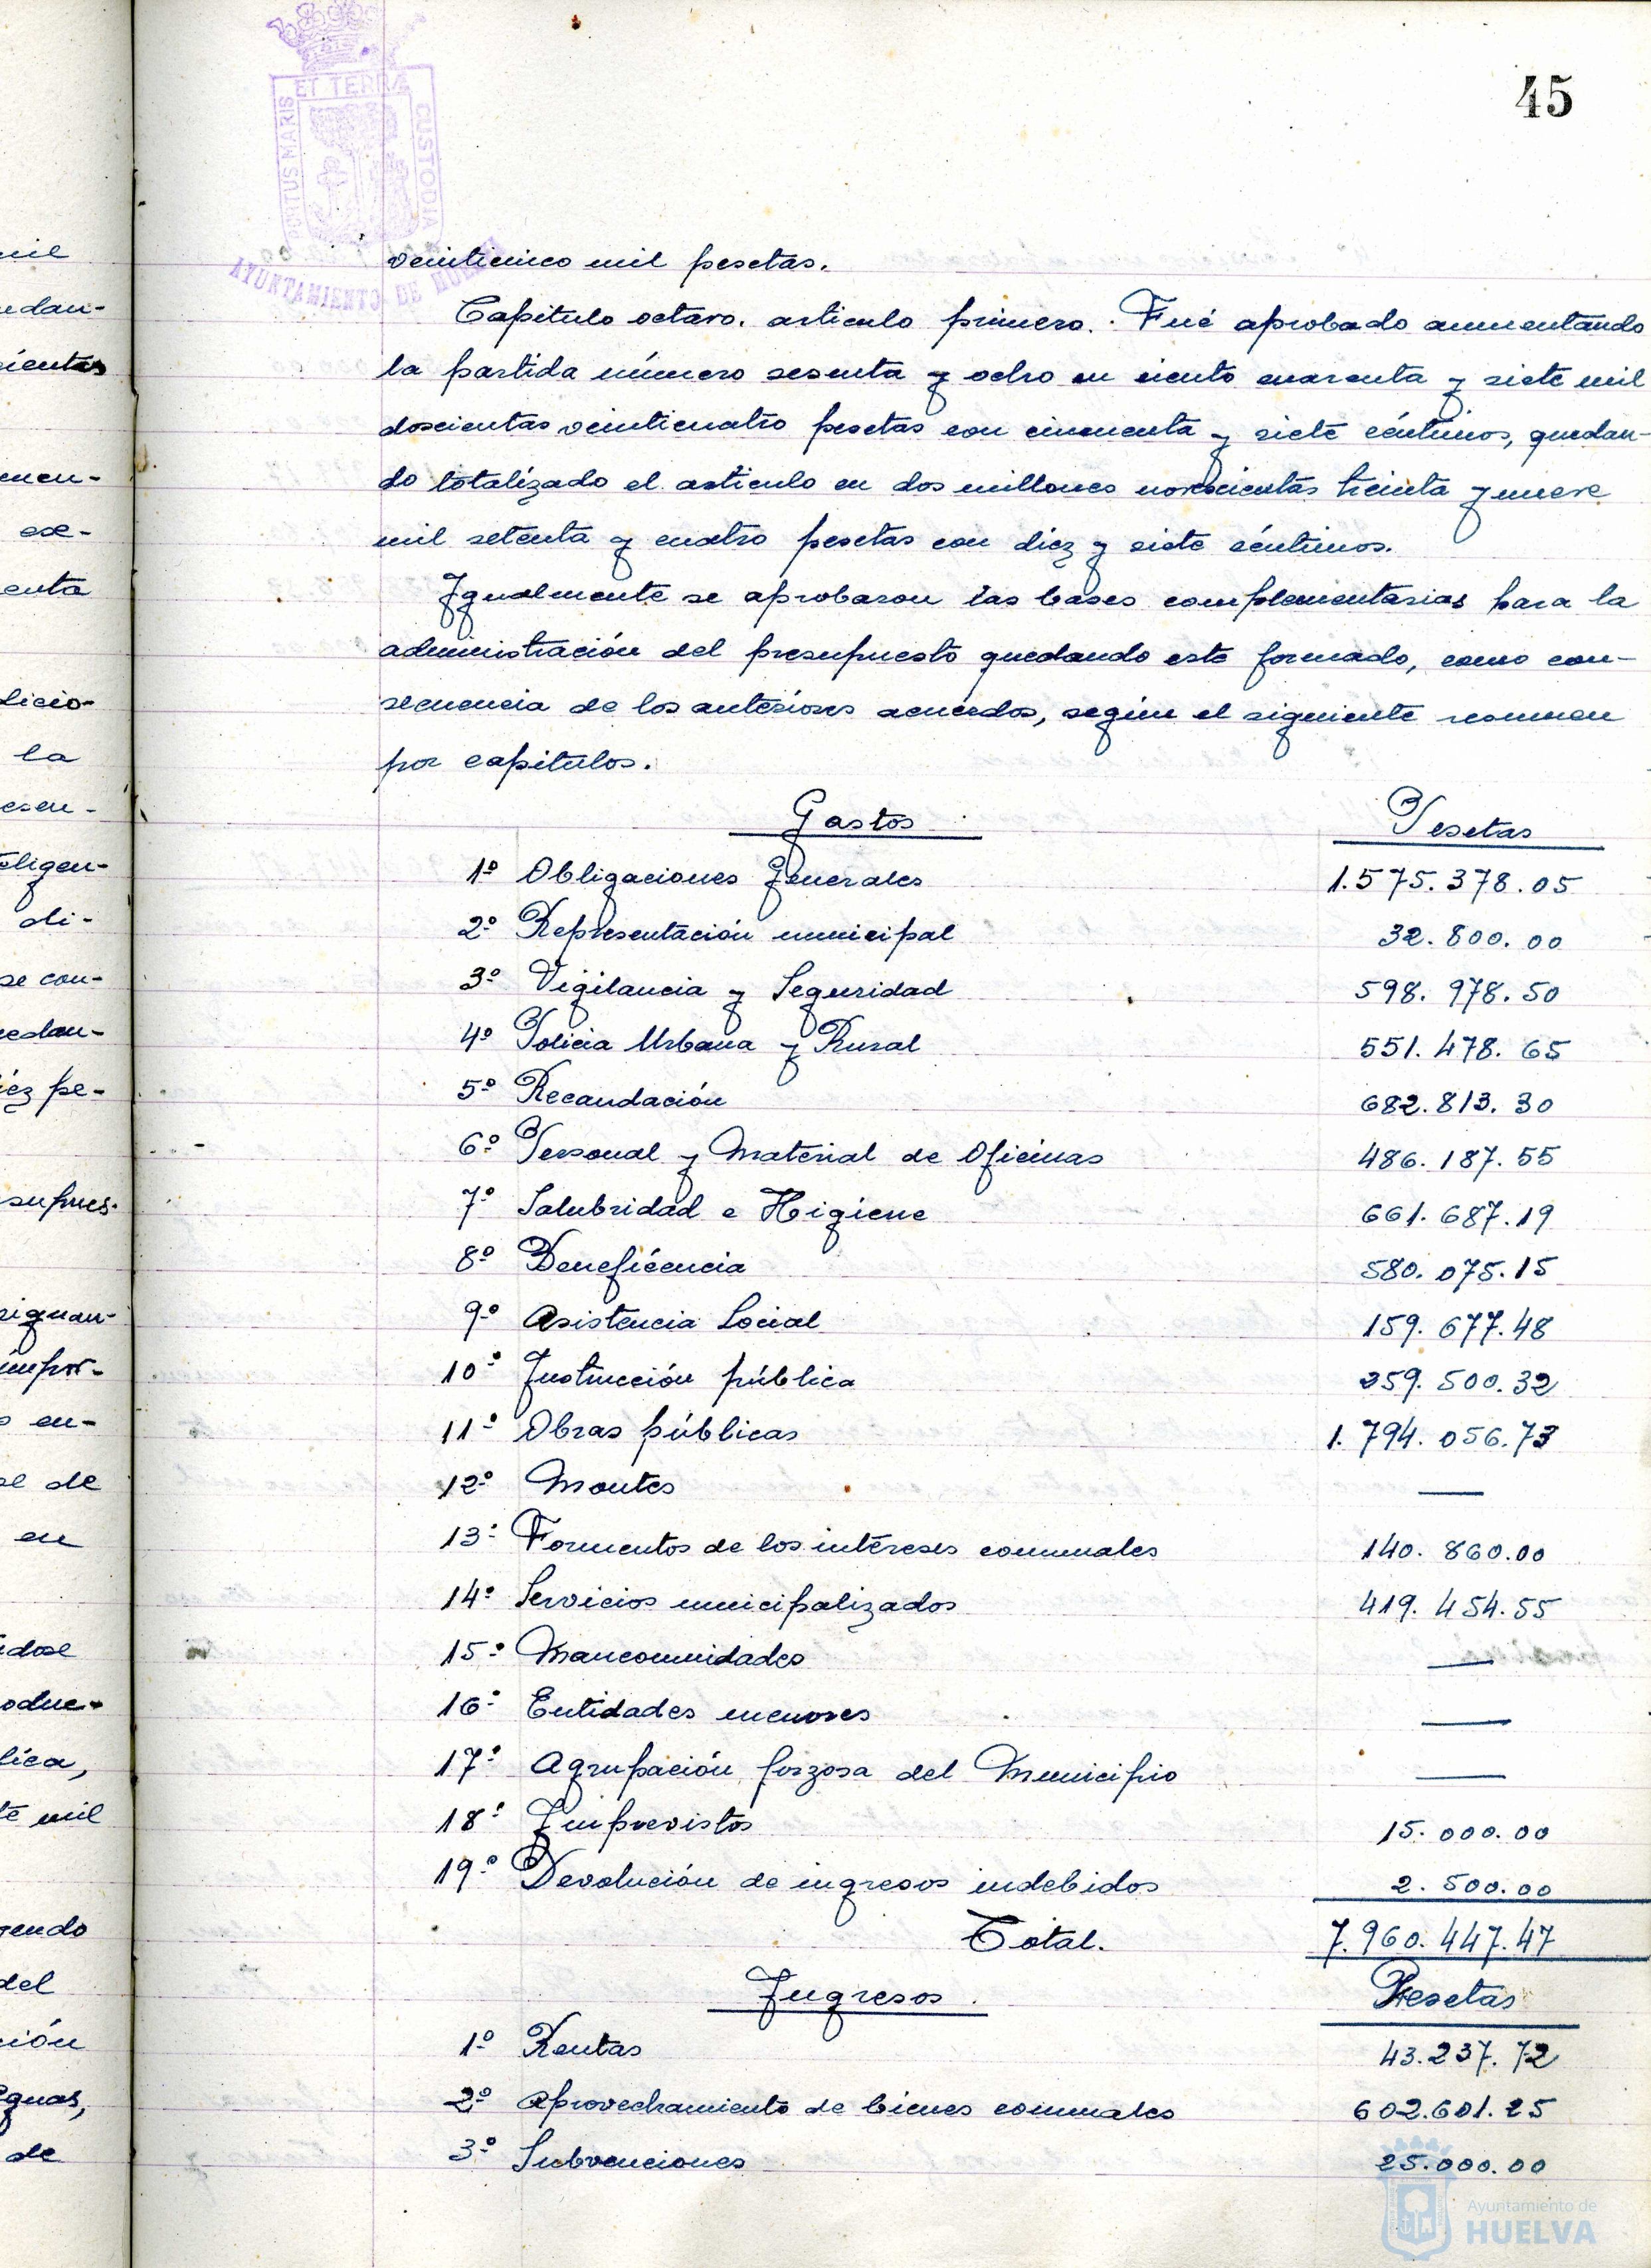 45
PORTUS MARIS ET TERRÆ CUSTODIA
AYUNTAMIENTO DE HUELVA
veinticinco mil pesetas.
Capitulo octavo. articulo primero. Fué aprobado aumentando
la partida número sesenta y ocho en ciento cuarenta y siete mil
doscientas veinticuatro pesetas con cincuenta y siete céntimos, quedan-
do totalizado el articulo en dos millones novecientas treinta y nueve
mil setenta y cuatro pesetas con diez y siete céntimos.
Igualmente se aprobaron las bases complementarias para la
administración del presupuesto quedando este formado, como con-
secuencia de los anteriores acuerdos, según el siguiente resumen
por capitulos.
Gastos Pesetas
1º Obligaciones Generales 1.575.378.05
2º Representación municipal 32.800.00
3º Vigilancia y Seguridad 598.978.50
4º Policia Urbana y Rural 551.478.65
5º Recaudación 682.813.30
6º Personal y Material de Oficinas 486.187.55
7º Salubridad e Higiene 661.687.19
8º Beneficencia 580.075.15
9º Asistencia Social 159.677.48
10º Instrucción pública 259.500.32
11º Obras públicas 1.794.056.73
12º Montes —
13º Formentos de los intereses comunales 140.860.00
14º Servicios municipalizados 419.454.55
15º Mancomunidades —
16º Entidades menores —
17º Agrupación forzosa del Municipio —
18º Imprevistos 15.000.00
19º Devolución de ingresos indebidos 2.500.00
Total. 7.960.447.47
Ingresos. Pesetas
1º Rentas 43.237.72
2º Aprovechamiento de bienes comunales 602.601.25
3º Subvenciones 25.000.00
Ayuntamiento de
HUELVA